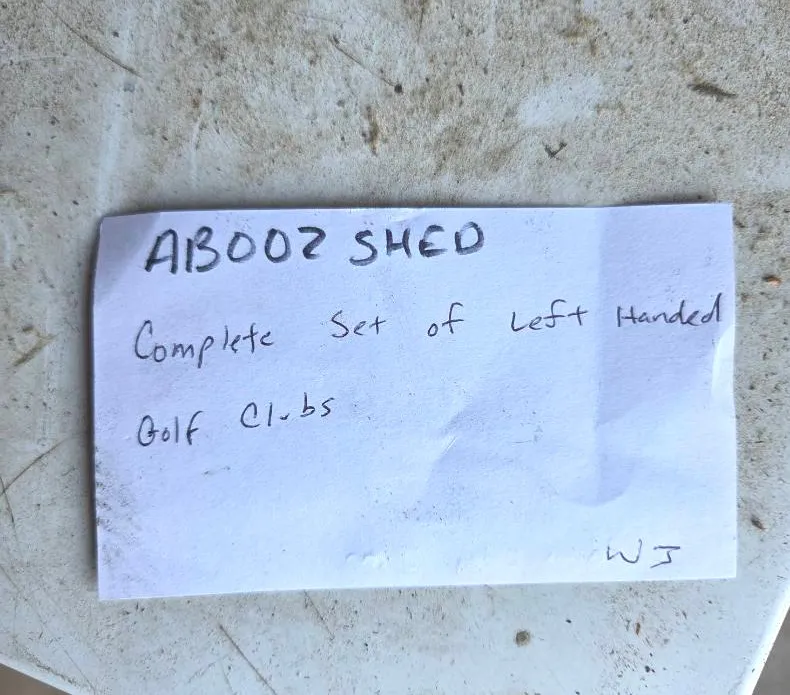 AB002 SHED
Complete Set of Left Handed
Golf Clubs
WJ